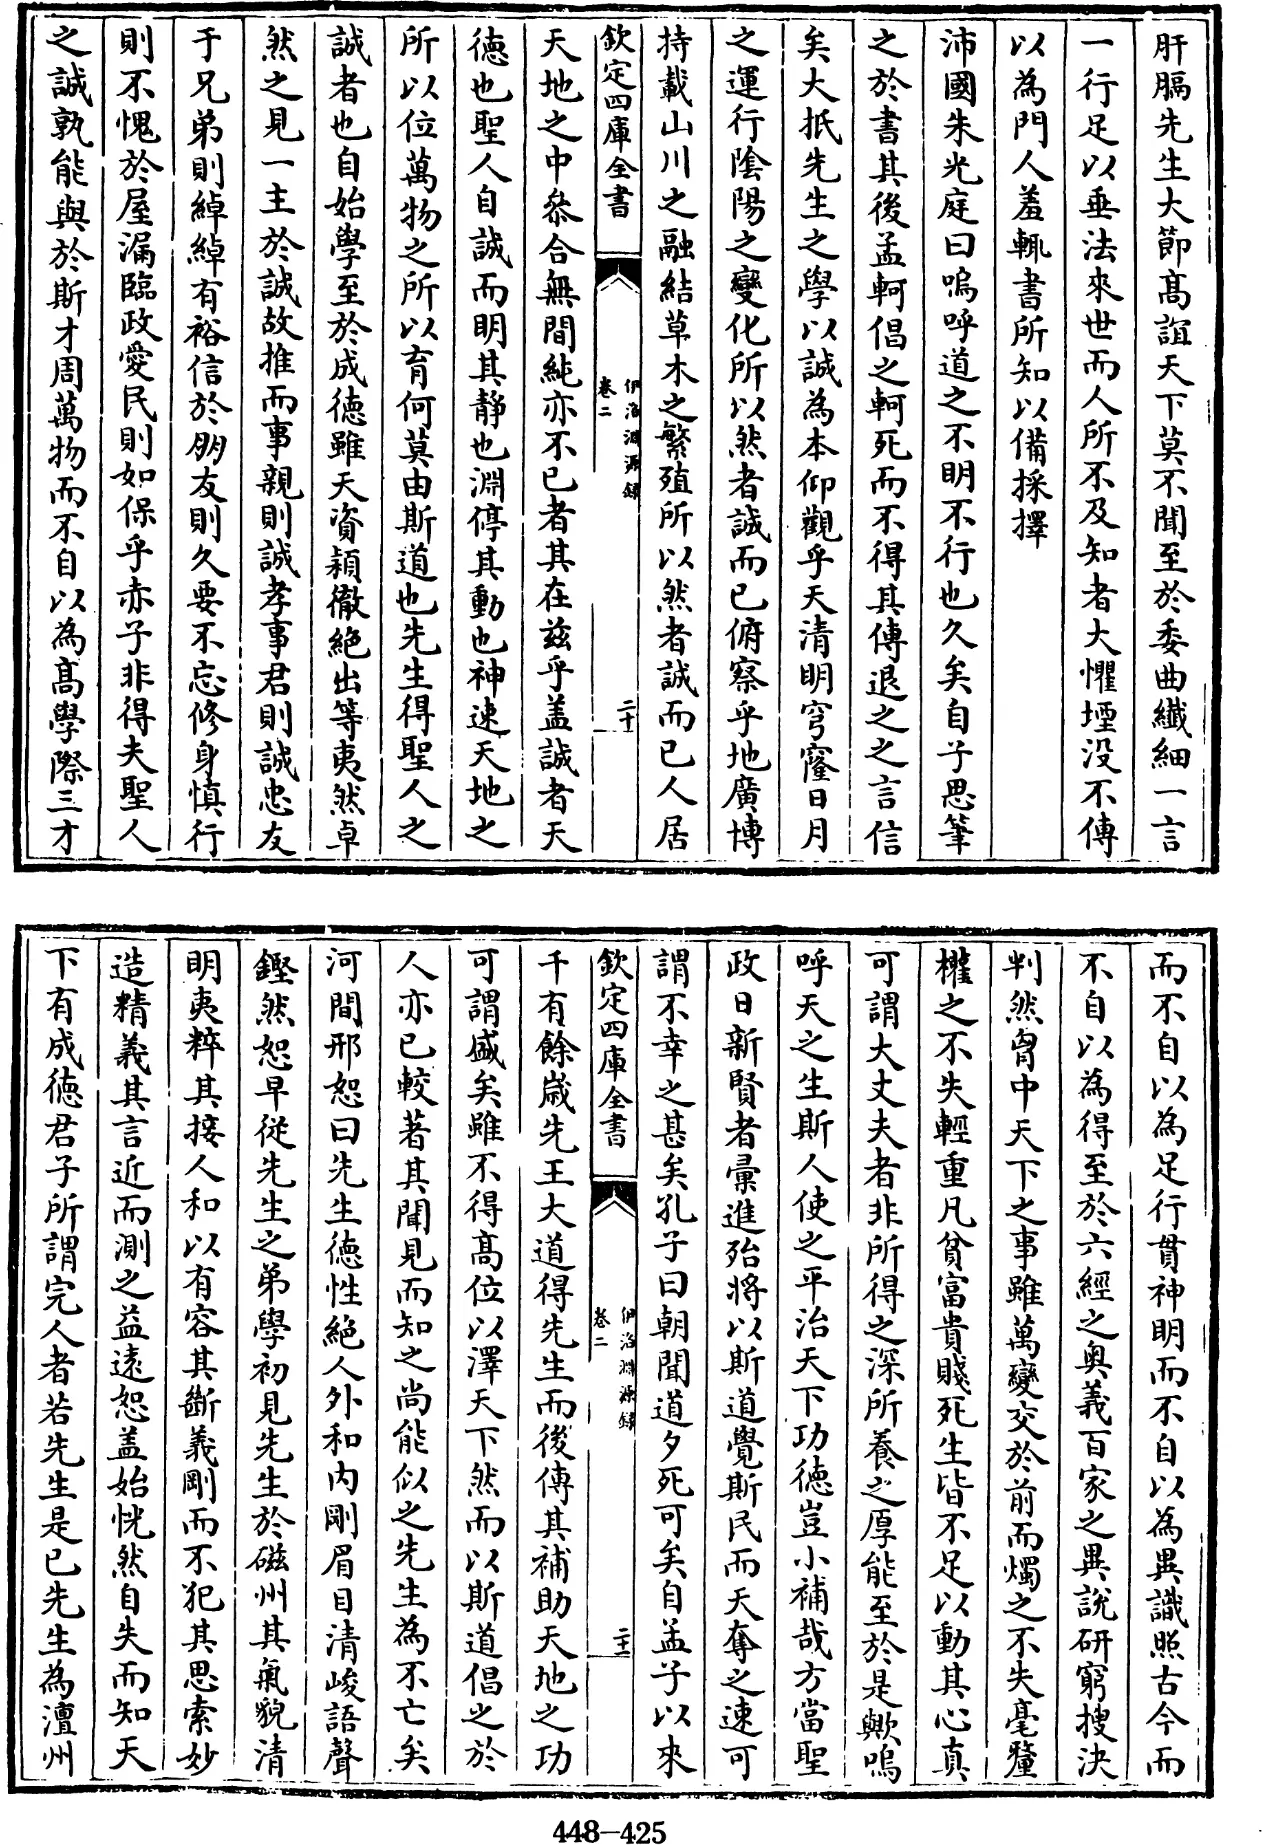 肝膈先生大節髙誼天下莫不聞至於委曲纖細一言
一行足以垂法來世而人所不及知者大懼堙没不傳
以為門人羞輒書所知以備採擇
沛國朱光庭曰嗚呼道之不明不行也久矣自子思筆
之於書其後孟軻倡之軻死而不得其傳退之之言信
矣大抵先生之學以誠為本仰觀乎天清明穹窿日月
之運行陰陽之變化所以然者誠而已俯察乎地廣博
持載山川之融結草木之繁殖所以然者誠而已人居
欽定四庫全書
伊洛淵源録
卷二
二十
天地之中叅合無間純亦不已者其在兹乎盖誠者天
徳也聖人自誠而明其靜也淵停其動也神速天地之
所以位萬物之所以育何莫由斯道也先生得聖人之
誠者也自始學至於成徳雖天資頴徹絶出等夷然卓
然之見一主於誠故推而事親則誠孝事君則誠忠友
于兄弟則綽綽有裕信於朋友則久要不忘修身慎行
則不愧於屋漏臨政愛民則如保乎赤子非得夫聖人
之誠孰能與於斯才周萬物而不自以為髙學際三才
而不自以為足行貫神明而不自以為異識照古今而
不自以為得至於六經之奥義百家之異說研窮搜決
判然胷中天下之事雖萬變交於前而燭之不失毫釐
權之不失輕重凡貧富貴賤死生皆不足以動其心真
可謂大丈夫者非所得之深所養之厚能至於是歟嗚
呼天之生斯人使之平治天下功徳豈小補哉方當聖
政日新賢者彚進殆將以斯道覺斯民而天奪之速可
謂不幸之甚矣孔子曰朝聞道夕死可矣自孟子以來
欽定四庫全書
伊洛淵源録
卷二
二十一
千有餘嵗先王大道得先生而後傳其補助天地之功
可謂盛矣雖不得髙位以澤天下然而以斯道倡之於
人亦已較著其聞見而知之尚能似之先生為不亡矣
河間邢恕曰先生徳性絶人外和内剛眉目清峻語聲
鏗然恕早從先生之弟學初見先生於磁州其氣貌清
明夷粹其接人和以有容其斷義剛而不犯其思索妙
造精義其言近而測之益遠恕盖始恍然自失而知天
下有成徳君子所謂完人者若先生是已先生為澶州
448-425